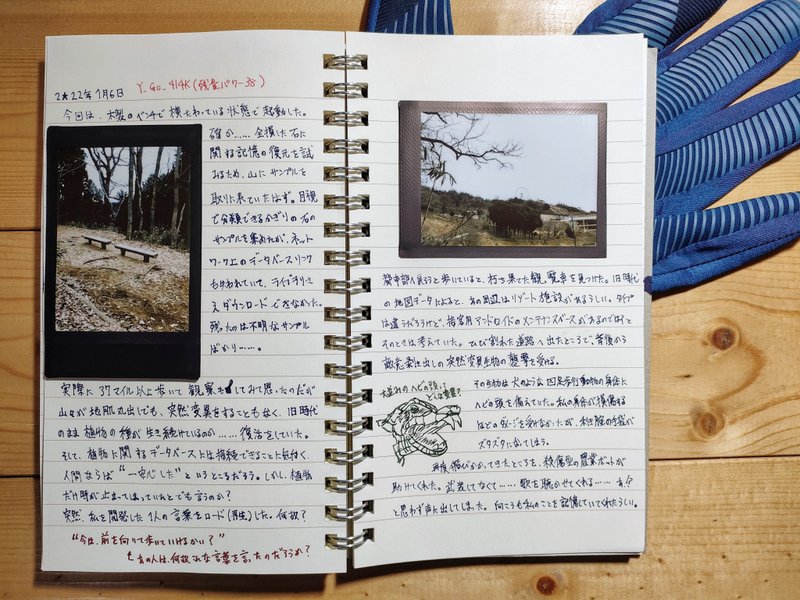 Y_Go_414K(残量パワー38)
2★22年9月6日
今回は、木製のベンチで横たわっている状態で起動した。
確か……全損した石に
関する記憶の復元を試
みるため、山にサンプルを
取りに来ていたはず。目視
で分類できるかぎりの石の
サンプルを集めたが、ネット
ワーク上のデータベースリンク
も切れていて、ライブラリーさ
えダウンロードできなかった。
残ったのは不明なサンプル
ばかり……。
実際に37マイル以上歩いて観察もしてみて思ったのだが
山々が地肌丸出しでも、突然変異をすることもなく、旧時代
のまま植物の種が生き続けているのか……復活をしていた。
そして、植物に関するデータベースとは接続できることに気付く。
人間ならば"一安心した"というところだろう。しかし、植物
だけ時が止まってしまっていたとでも言うのか?
突然、私を開発した1人の言葉をロード(再生)した。何故?
"今は、前を向いて歩いていけるかい?"
あの人は、何故こんな言葉を言ったのだろうか?
ふらふらと歩いていると、朽ち果てた観覧車を見つけた。旧時代
の地図データによると、あの周辺はリゾート施設があるらしい。タイプ
は違うだろうけど、接客用アンドロイドのメンテナンスベースがあるのではと
そのときは考えていた。ひび割れた道路へ出たところで、背後から
敵意剥き出しの突然変異生物の襲撃を受ける。
木並みのヘビの頭って
どんな重量?
その生物は犬のような四足歩行動物の身体に
ヘビの頭を備えていた。私の身体が損傷する
ほどのダメージを受けなかったが、利き腕の手袋が
ズタズタになってしまう。
再度、飛びかかってきたところを、殺傷型の農業ボットが
助けてくれた。武装してなくて……歌を聴かせてくれる……
と思わず声に出してしまった。向こうも私のことを記憶していてくれたらしい。